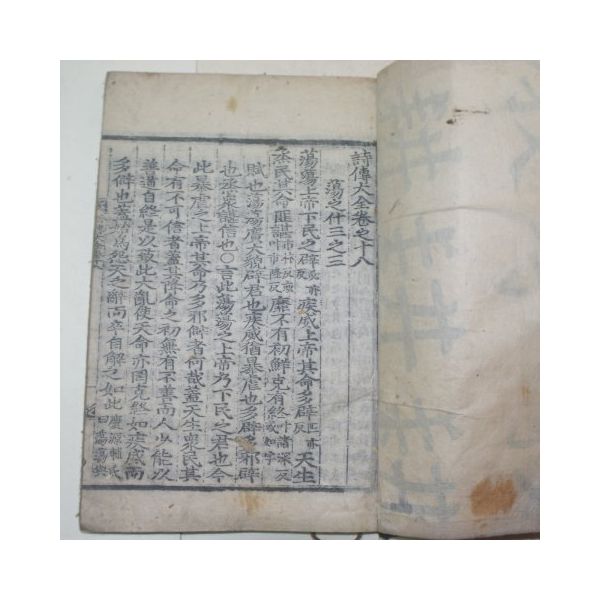 詩傳大全卷之十八
蕩之什三之三
蕩蕩上帝下民之辟 疾威上帝其命多辟 天生
烝民其命匪諶 靡不有初鮮克有終
賦也蕩蕩廣大貌辟君也疾威猶暴虐也多辟多邪辟
也烝衆諶信也○言此蕩蕩之上帝乃下民之君也今
此暴虐之上帝其命乃多邪僻者何哉蓋天生衆民其
命有不可信者蓋其降命之初無有不善而人少能以
善道自終是以致此大亂使天命亦罔克終如疾威而
多僻也蓋始爲怨天之辭而卒自解之如此 慶源輔氏曰蕩蕩